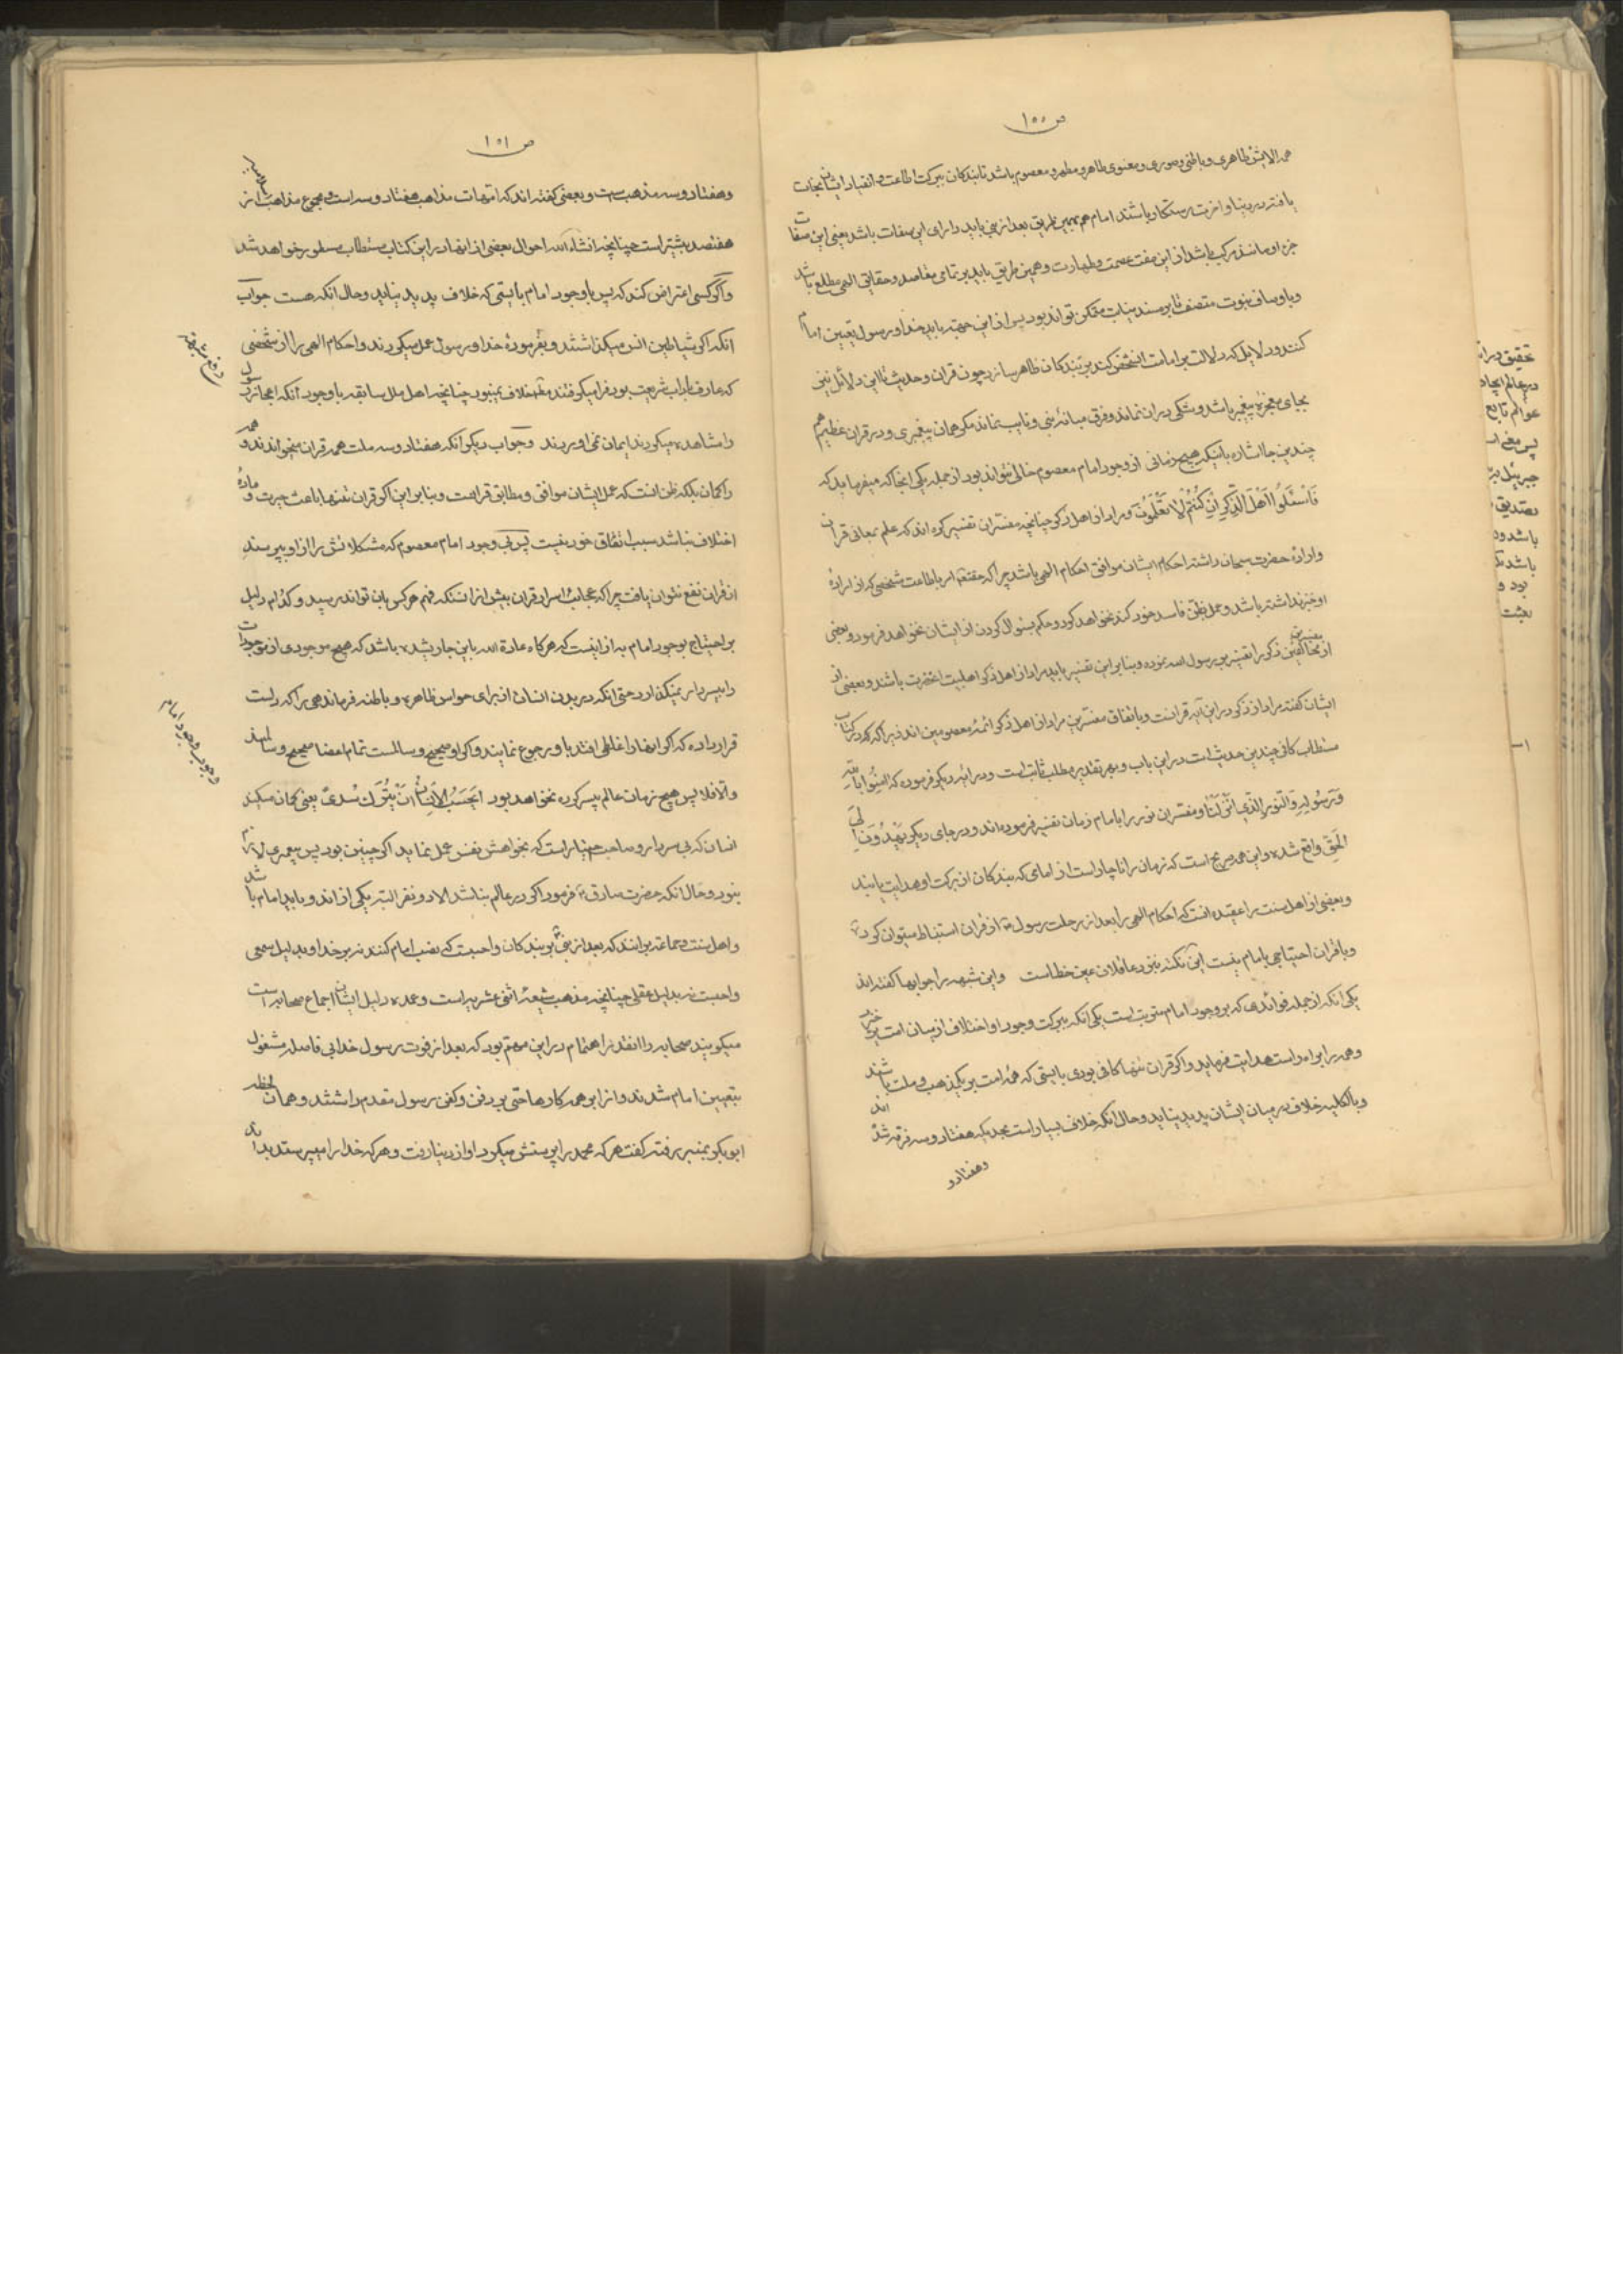 ص ۱۵۰
همه الایش ظاهری و باطنی و صوری و معنوی طاهر و مطهر و معصوم باشد تا بندکان ببرکت اطاعت و انقیاد ایشان نجات
یافته در دنیا و اخرت رستکار باشند امام هم بهمین طریق بعد از نبی باید دارای این صفات باشد یعنی این صفات
جزء او مانند مرکب باشد از این صفت عصمت و طهارت و همین طریق باید بر تمامی مقاصد و حقایق الهی مطلع باشد
و باوصاف نبوت متصف تا بر مسند نیابت متمکن تواند بود پس از این جهة باید خدا و رسول تعیین امام
کنند و دلایل که دلالت بر امامت انشخص کند بر بندکان ظاهر سازد چون قران و حدیث تا این دلائل نبی
بجای معجزه پیغمبر باشد و شکی در ان نماند و فرق میانه نبی و نایب نماند مکر همان پیغمبری و در قران عظیم هم
چندین جا اشاره باینکه هیچ زمانی از وجود امام معصوم خالی نتواند بود از جمله یکی انجا که میفرماید که
فَاسْئَلُوا اَهْلَ الذِّکْرِ اِنْ کُنْتُمْ لا تَعْلَمُونَ و مراد از اهل ذکر چنانچه مفسران تفسیر کرده اند که علم بمعانی قران
و اراده حضرت سبحان داشته احکام ایشان موافق احکام الهی باشد چرا که حقتعالی امر باطاعت شخصی که از اراده
او خبر نداشته باشد و عمل بظن فاسد خود کند نخواهد کرد و حکم بسوال کردن از ایشان نخواهد فرمود و بعضی
از مخالفین مفسرین ذکر را تفسیر برسول الله نموده و بنابر این تفسیر باید مراد از اهل ذکر اهلبیت انحضرت باشد و بعضی از
ایشان کفته مراد از ذکر در این آیه قرانست و باتفاق مفسرین مراد از اهل ذکر ائمه معصومین اند زیرا که در کتاب
مستطاب کافی چندین حدیث است در این باب و بهر تقدیر مطلب ثابت است و در آیه دیکر فرموده که امِنُوا بِاللّهِ
وَ رَسُولِهِ وَ النُّورِ الَّذِی اَنْزَلْنا و مفسرین نور را بامام زمان تفسیر فرموده اند و در جای دیکر یَهْدُونَ اِلَی
الْحَقِّ واقع شده و این همه صریح است که زمان را ناچار است از امامی که بندکان از برکت او هدایت یابند
و بعضی از اهل سنت را عقیده انست که احکام الهی را بعد از رحلت رسول ص از قران استنباط میتوان کرد
و با قران احتیاجی بامام نیست این نکته نزد عاقلان عین خطاست و این شبهه را جوابها کفته اند
یکی انکه از جمله فوائدی که بر وجود امام مترتب است یکی انکه ببرکت وجود او اختلاف از میان امت برخیزد
و همه را براه راست هدایت فرماید و اکر قران تنها کافی بودی بایستی که همه امت بر یکمذهب و ملت باشند
و بالکلیه خلاف در میان ایشان پدید نیاید و حال انکه خلاف بسیار است بحدیکه هفتاد و سه فرقه شده اند
و هفتاد و
ص ۱۵۱
و هفتاد و سه مذهب است و بعضی کفته اند که امهات مذاهب هفتاد و سه است و مجموع مذاهب از
هفتصد بیشتر است چنانچه انشاء الله احوال بعضی از انها در این کتاب مستطاب مسطور خواهد شد
و اکر کسی اعتراض کند که پس با وجود امام بایستی که خلاف پدید نیاید و حال انکه هست جواب
انکه اکر شیاطین انس میکذاشتند و بفرموده خدا و رسول عمل میکردند و احکام الهی را از شخصی
که عارف بآداب شریعت بود فرا میکرفتند خلاف نمیبود چنانچه اهل ملل سابقه با وجود آنکه اعجاز رسول
را مشاهده میکردند ایمان نمی اوردند و جواب دیکر انکه هفتاد و سه ملت همه قران میخوانند و همه
را کمان بلکه ظن انست که عمل ایشان موافق و مطابق قرانست و بنابر این اکر قران تنها باعث حیرت و ماده
اختلاف نباشد سبب اتفاق خود نیست پس بی وجود امام معصوم که مشکلاتش را از او بپرسند
از قران نفع نتوان یافت چرا که عجائب اسرار قران بیش از انستکه فهم هرکس بان تواند رسید و کدام دلیل
بر احتیاج بوجود امام به از اینست که هرکاه عادة الله باین جاری شده باشد که هیچ موجودی از موجودات
را بیسردار نمیکذارد حتی انکه در بدن انسان از برای حواس ظاهره و باطنه فرماندهی را که دلست
قرار داده که اکر انها را غلطی افتد باو رجوع نمایند و اکر او صحیح و سالمست تمام اعضا صحیح و سالمند
و الا فلا پس هیچ زمان عالم بیسرکرده نخواهد بود اَیَحْسَبُ الْاِنْسانُ اَنْ یُتْرَکَ سُدیً یعنی کمان میکند
انسان که بی سردار و صاحب اختیار است که بخواهش نفس عمل نماید اکر چنین بود پس پیغمبری لازم
نبود و حال انکه حضرت صادق ع فرمود اکر در عالم نباشد الا دو نفر البته یکی از اندو باید امام باشد
و اهل سنت و جماعة برانند که بعد از نبی بر بندکان واجبست که نصب امام کنند نه بر خدا و بدلیل سمعی
واجبست نه بدلیل عقلی چنانچه مذهب شیعه اثنی عشریه است و عمده دلیل ایشان اجماع صحابه است
میکویند صحابه را انقدر اهتمام در این مهم بود که بعد از فوت رسول خدا بی فاصله مشغول
بتعیین امام شدند و انرا بر همه کارها حتی بر دفن و کفن رسول مقدم داشتند و همان لحظه
ابوبکر بمنبر رفته کفت هر که محمد را پرستش میکرد او از دنیا رفت و هر که خدا را میپرستد بداند
وجوب وجود امام
تحقیق در ا
در عالم ایجاد
عوالم تابع
پس معنی ا
جبرئیل
تصدیق
باشد و
باشد
بود و
بعثت